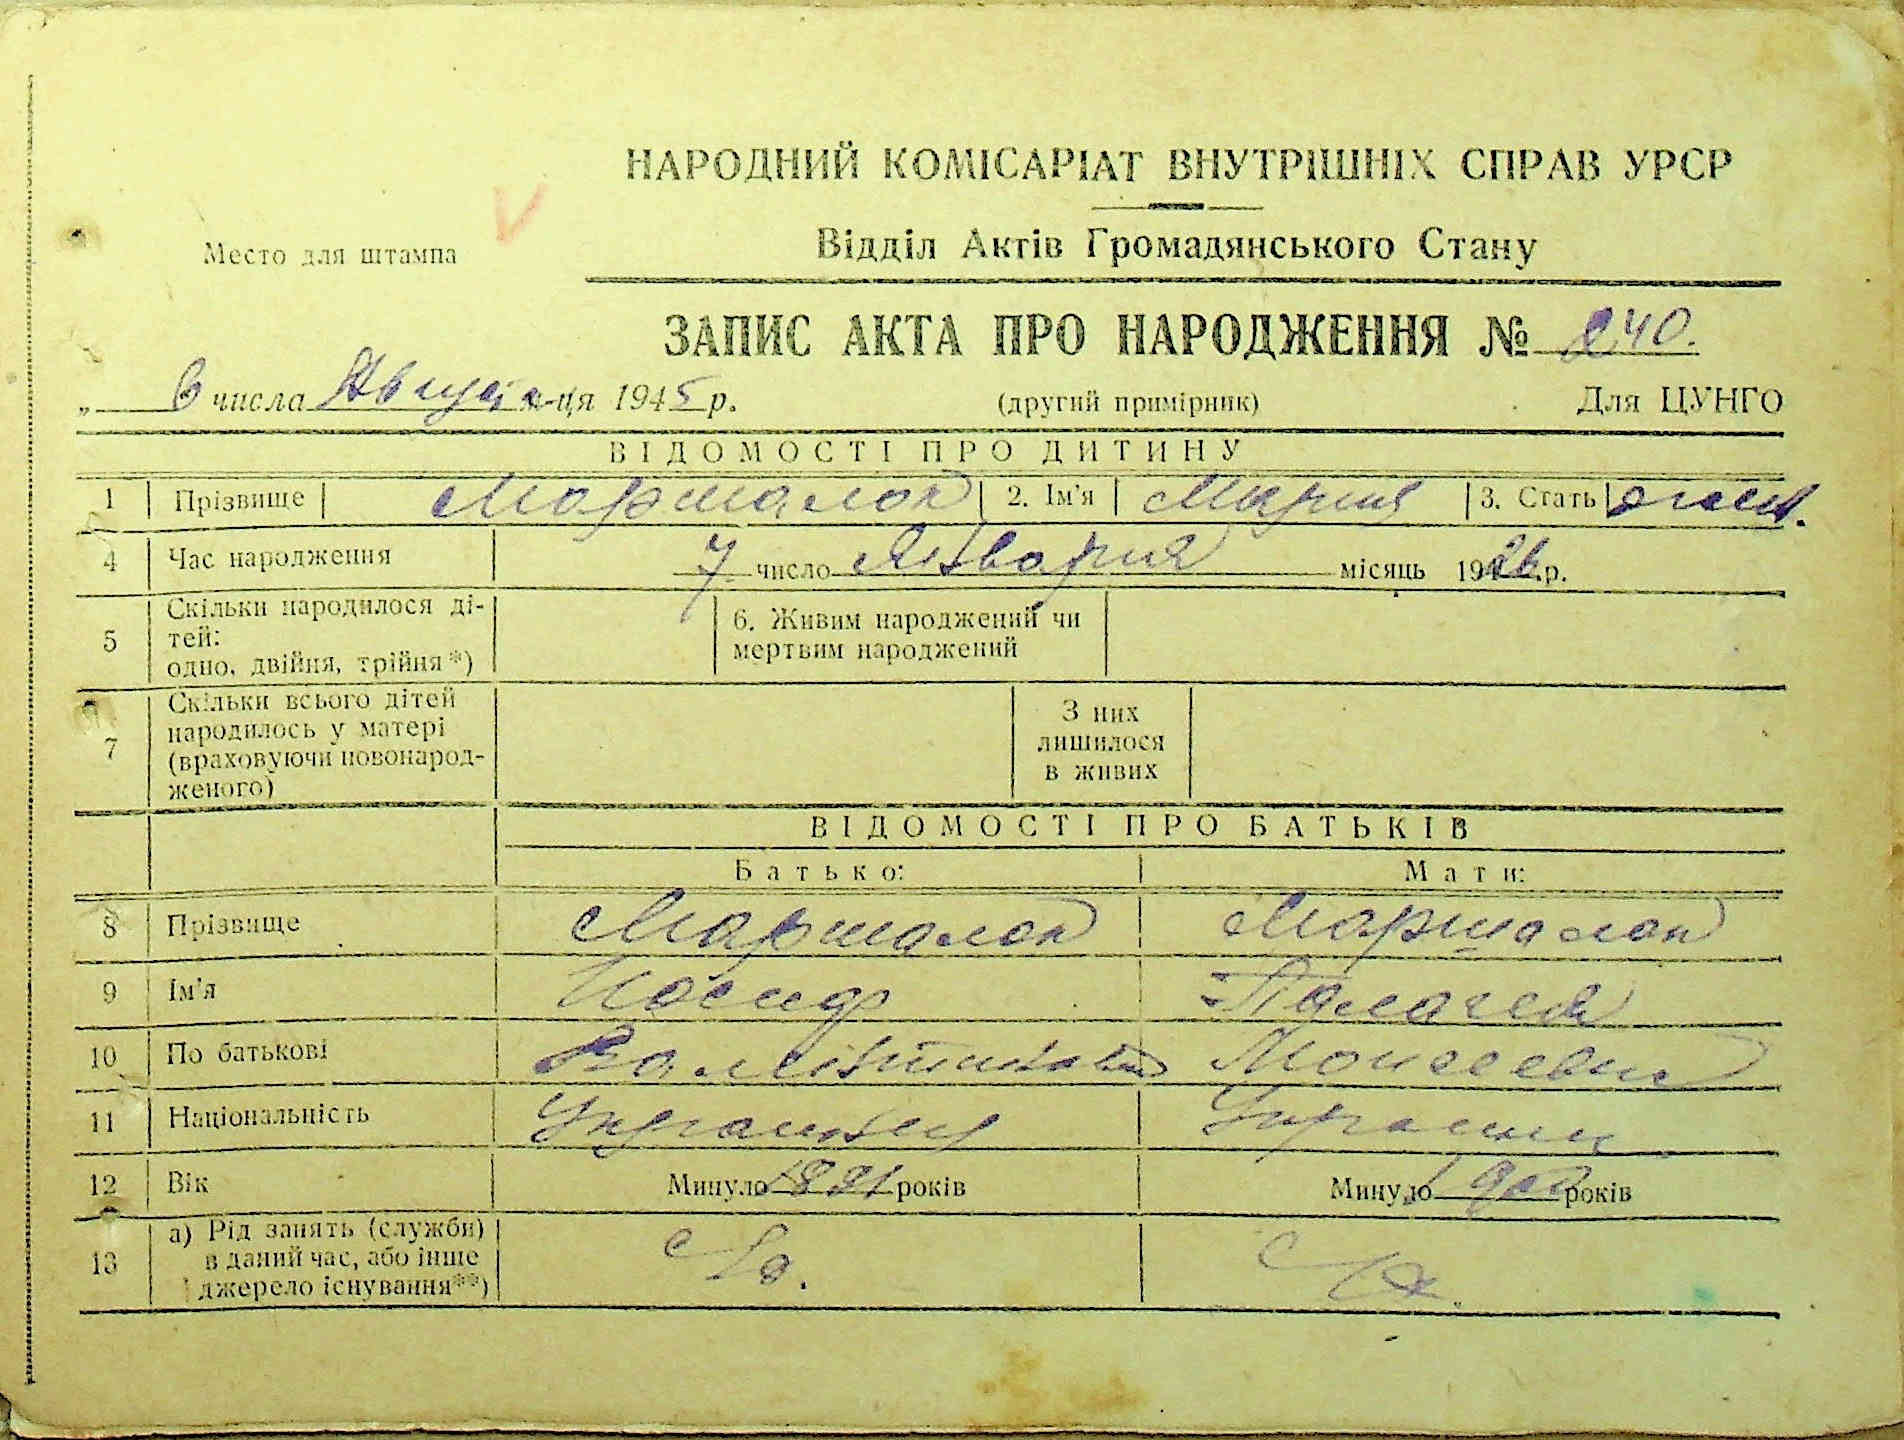 НАРОДНИЙ КОМІСАРІАТ ВНУТРІШНІХ СПРАВ УРСР
Место для штампа
Відділ Актів Громадянського Стану
ЗАПИС АКТА ПРО НАРОДЖЕННЯ № 240.
„ 6 числа Августа м-ця 1945 р. (другий примірник) Для ЦУНГО
ВІДОМОСТІ ПРО ДИТИНУ
1 Прізвище Маршалок 2. Ім'я Мария 3. Стать женск.
4 Час народження 7 число Января місяць 1926 р.
5 Скільки народилося ді-
тей:
одно, двійня, трійня*)
6. Живим народжений чи
мертвим народжений
7 Скільки всього дітей
народилось у матері
(враховуючи новонарод-
женого)
З них
лишилося
в живих
ВІДОМОСТІ ПРО БАТЬКІВ
Батько: Мати:
8 Прізвище Маршалок Маршалок
9 Ім'я Иосиф Палагея
10 По батькові Моисеевна
11 Національність Украинец Украинк
12 Вік Минуло 1891 років Минуло років
13 а) Рід занять (служби)
в даний час, або інше
джерело існування**)